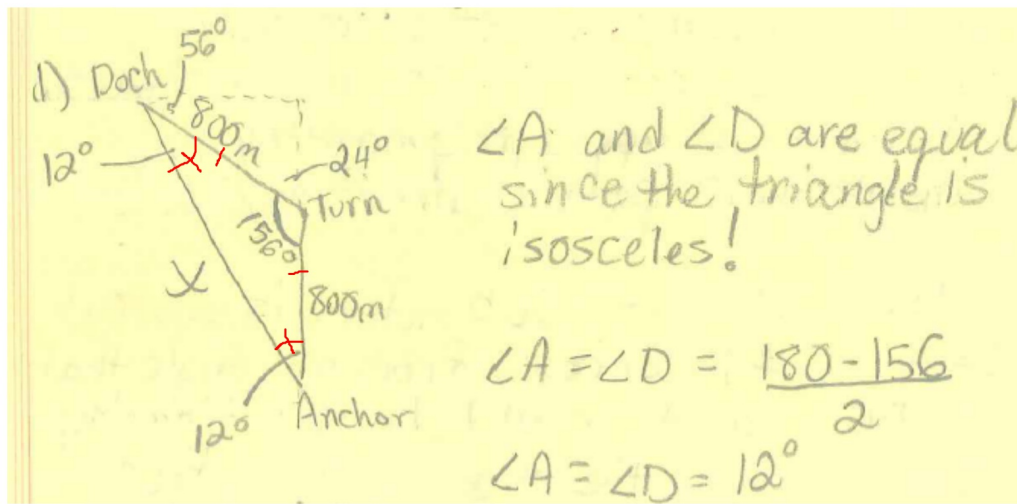 56°
d) Doch
800m
12°
24°
Turn
156°
x
800m
12°
Anchor
∠A and ∠D are equal
since the triangle is
isosceles!
∠A = ∠D = 180-156
2
∠A = ∠D = 12°